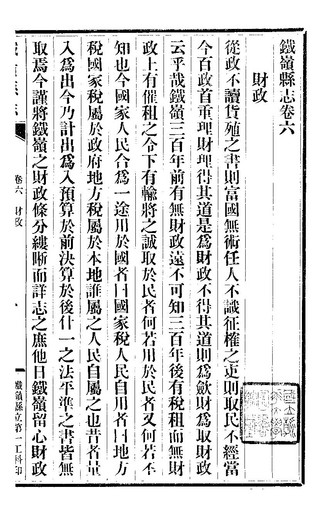 鐵嶺縣志卷六
財政
從政不讀貨殖之書則富國無術任人不識征榷之吏則取民不經當
今百政首重理財理得其道是爲財政不得其道則爲斂財爲取財政
云乎哉鐵嶺三百年前有無財政遠不可知三百年後有稅租而無財
政上有催租之令下有輸將之誠取於民者何若用於民者又何若不
知也今國家人民合爲一途用於國者曰國家稅人民自用者曰地方
稅國家稅屬於政府地方稅屬於本地誰屬之人民自屬之也昔者量
入爲出今乃計出爲入預算於前決算於後什一之法平準之書皆無
取焉今謹將鐵嶺之財政條分縷晰而詳志之庶他日鐵嶺留心財政
卷六 財政
鐵嶺縣立第一工科印